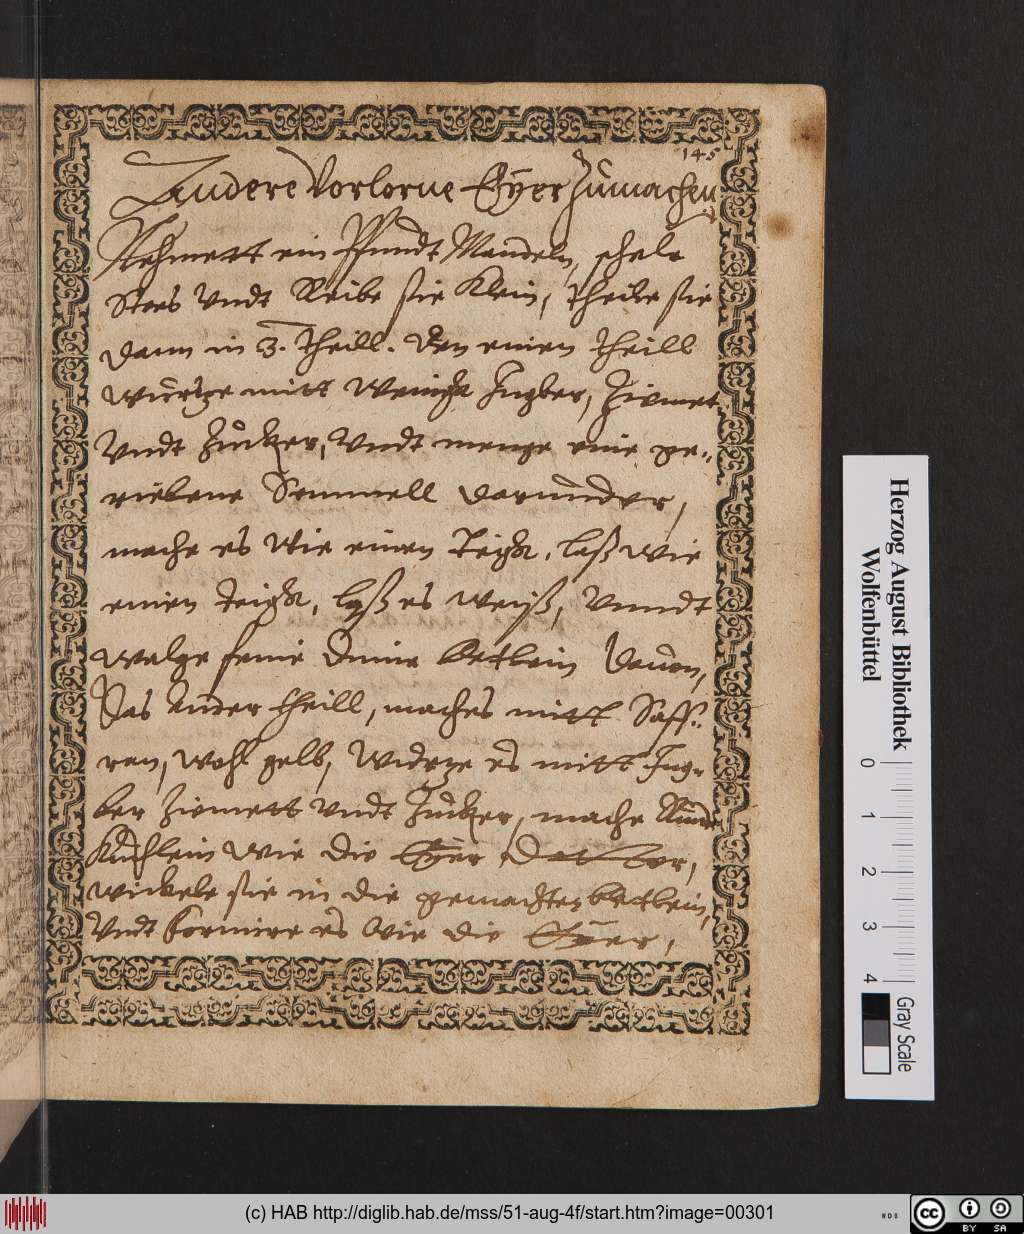 145
Andere Vorlorne Eÿer Zumachen
Nehmett ein Pfundt Mandeln, schele
Stoes Undt Reibe sie Klein, theile sie
dann in 3. theill. den einen theill
würtze mitt wenigk Ingber, Zimmet
Undt Zucker, Undt menge eine ge-
riebene Semmell darunder,
mache es wie einen Teigk, laß wie
einen teigk, laß es weiß, Unndt
welge feine dinne bletlein dauon,
Das ander theill, maches mitt Saff-
ran, wohl gelb, Würtze es mitt Ing-
ber Zimett Undt Zucker, mache Runde
Kuchlein wie die Eÿer Dotter,
wickele sie in die gemachten bletlein,
Undt formire es wie die Eÿer,
Herzog August Bibliothek
Wolfenbüttel
0 1 2 3 4
Gray Scale
(c) HAB http://diglib.hab.de/mss/51-aug-4f/start.htm?image=00301
WDB
cc BY SA